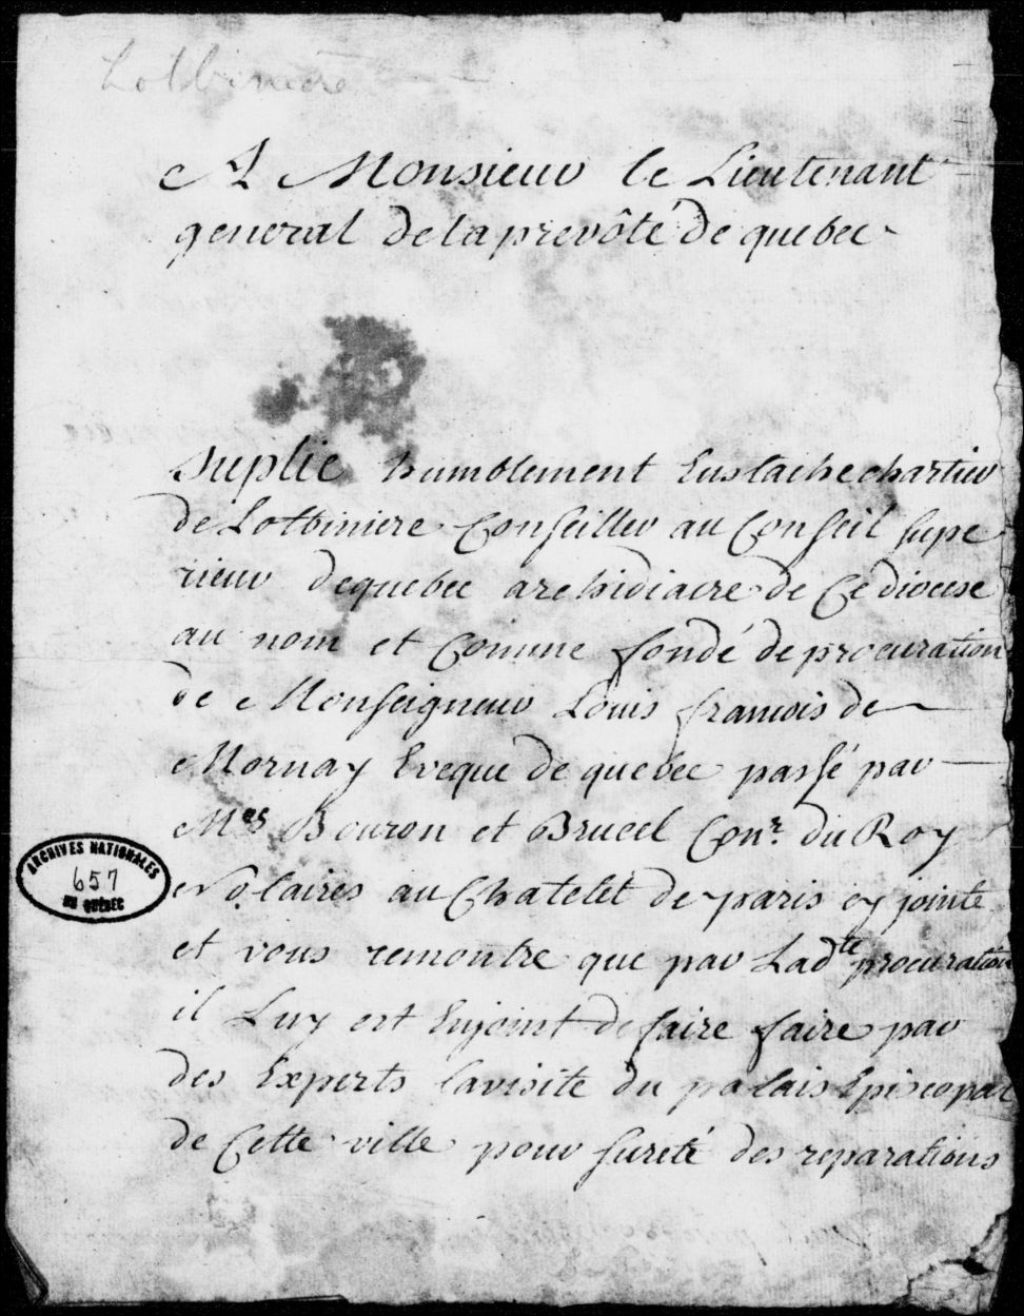 Lotbiniere
A Monsieur le Lieutenant
general de la prevôté de quebec
Suplie humblement Eustache chartier
de Lotbiniere Conseiller au Conseil supe
rieur de quebec archidiacre de Ce diocese
au nom et Comme fondé de procuration
de Monseigneur Louis francois de
Mornay Eveque de quebec passé par
Mes Bouron et Bruel Conr. du Roy
Notaires au Chatelet de paris cy jointe
et vous remontre que par Ladte procuration
il Luy est Enjoint de faire faire par
des Experts la visite du palais Episcopal
de Cette ville pour sureté des reparations
ARCHIVES NATIONALES
657
DU QUÉBEC